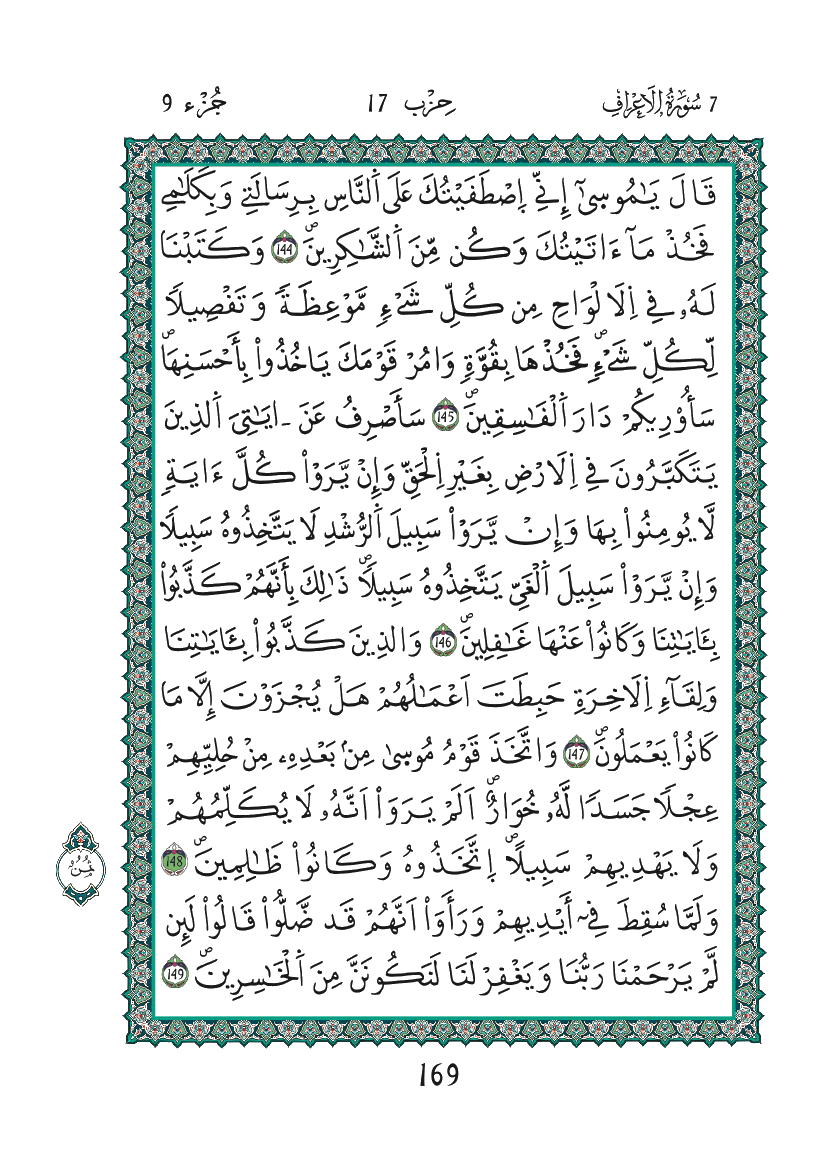 7 سُورَةُ اُلَاعْرَافِ حِزْب 17 جُزْء 9
قَالَ يَٰمُوسَىٰٓ إِنِّے اِ۪صْطَفَيْتُكَ عَلَى اَ۬لنَّاسِ بِرِسَٰلَتِے وَبِكَلَٰمِے
فَخُذْ مَآ ءَاتَيْتُكَ وَكُن مِّنَ اَ۬لشَّٰكِرِينَۖ 144 وَكَتَبْنَا
لَهُۥ فِے اِ۬لَالْوَاحِ مِن كُلِّ شَےْءٖ مَّوْعِظَةٗ وَتَفْصِيلاٗ
لِّكُلِّ شَےْءٖۖ فَخُذْهَا بِقُوَّةٖ وَامُرْ قَوْمَكَ يَاخُذُواْ بِأَحْسَنِهَاۖ
سَأُوْرِيكُمْ دَارَ اَ۬لْفَٰسِقِينَۖ 145 سَأَصْرِفُ عَنَ ـ ايَٰتِيَ اَ۬لذِينَ
يَتَكَبَّرُونَ فِے اِ۬لَارْضِ بِغَيْرِ اِ۬لْحَقِّ وَإِنْ يَّرَوْاْ كُلَّ ءَايَةٖ
لَّا يُومِنُواْ بِهَا وَإِنْ يَّرَوْاْ سَبِيلَ اَ۬لرُّشْدِ لَا يَتَّخِذُوهُ سَبِيلاٗ
وَإِنْ يَّرَوْاْ سَبِيلَ اَ۬لْغَيِّ يَتَّخِذُوهُ سَبِيلاٗۖ ذَٰلِكَ بِأَنَّهُمْ كَذَّبُواْ
بِـَٔايَٰتِنَا وَكَانُواْ عَنْهَا غَٰفِلِينَۖ 146 وَالذِينَ كَذَّبُواْ بِـَٔايَٰتِنَا
وَلِقَآءِ اِ۬لَاخِرَةِ حَبِطَتَ اَعْمَٰلُهُمْ هَلْ يُجْزَوْنَ إِلَّا مَا
كَانُواْ يَعْمَلُونَۖ 147 وَاتَّخَذَ قَوْمُ مُوسَىٰ مِنۢ بَعْدِهِۦ مِنْ حُلِيِّهِمْ
عِجْلاٗ جَسَداٗ لَّهُۥ خُوَارٌۖ اَلَمْ يَرَوَاْ اَنَّهُۥ لَا يُكَلِّمُهُمْ
وَلَا يَهْدِيهِمْ سَبِيلاًۖ اِ۪تَّخَذُوهُ وَكَانُواْ ظَٰلِمِينَۖ 148
ثمن
وَلَمَّا سُقِطَ فِےٓ أَيْدِيهِمْ وَرَأَوَاْ اَنَّهُمْ قَد ضَّلُّواْ قَالُواْ لَئِن
لَّمْ يَرْحَمْنَا رَبُّنَا وَيَغْفِرْ لَنَا لَنَكُونَنَّ مِنَ اَ۬لْخَٰسِرِينَۖ 149
169